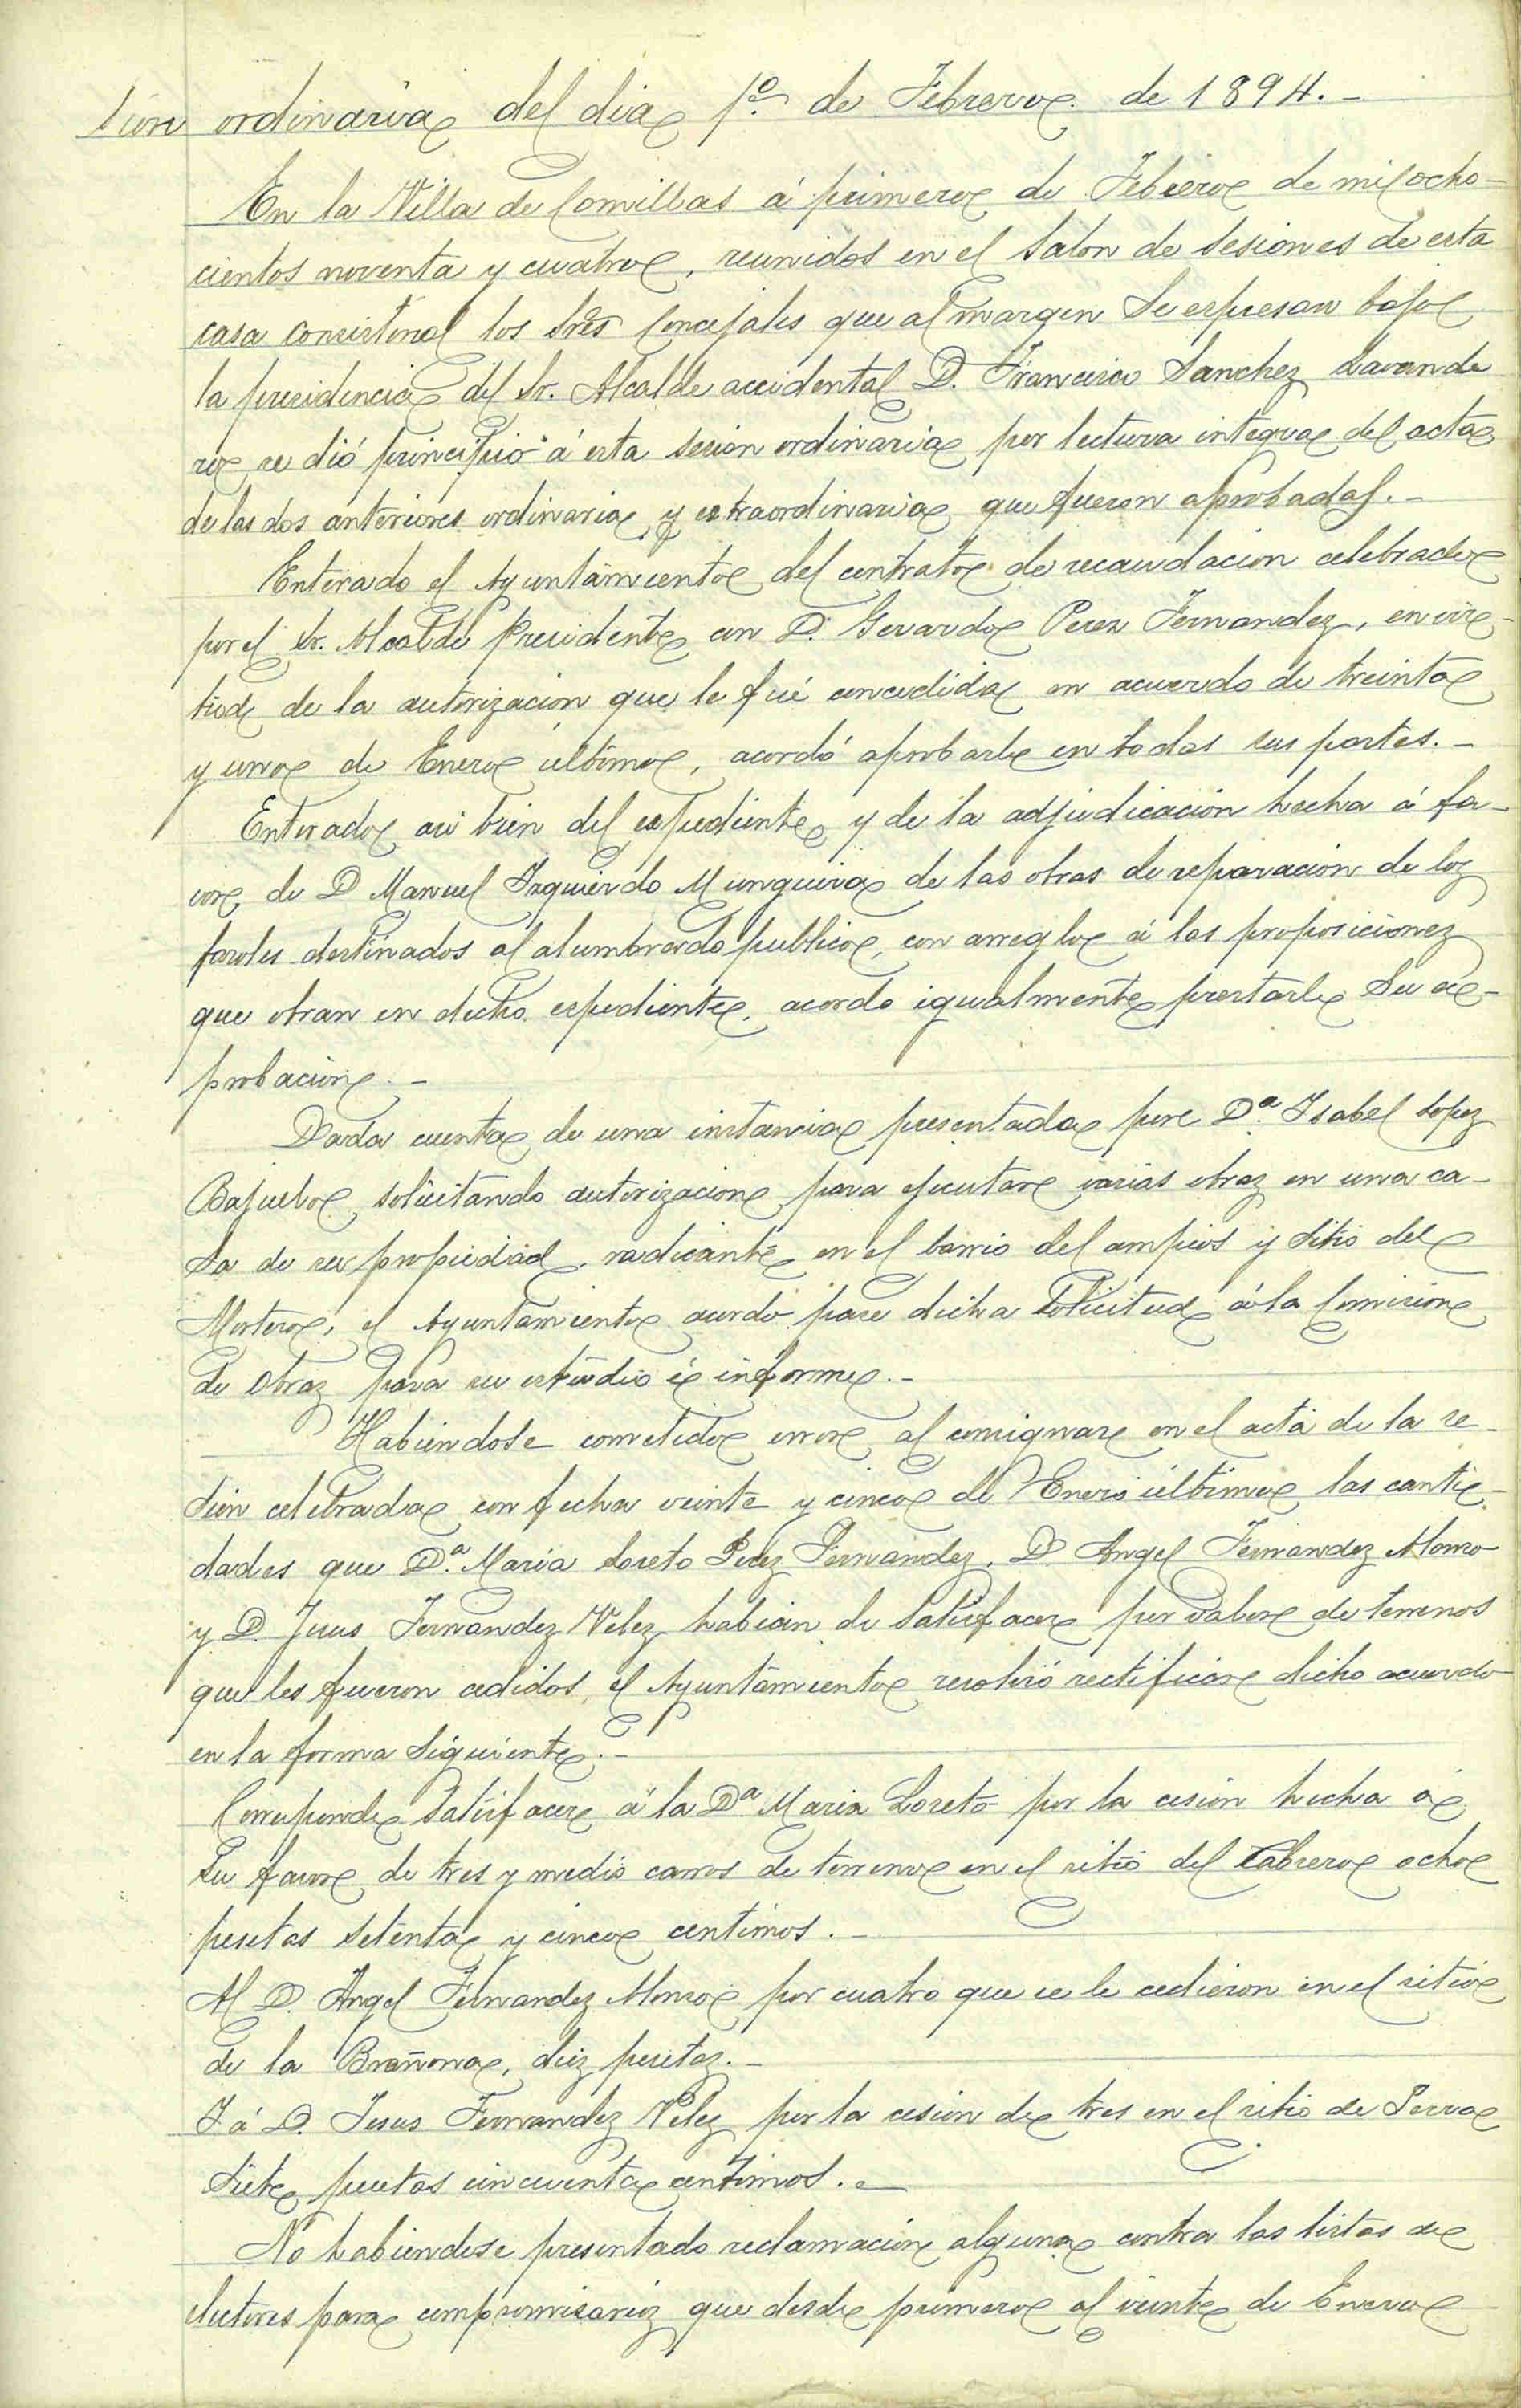 sion ordinaria del dia 1º de Febrero de 1894.-
En la Villa de Comillas á primero de Febrero de mil ocho-
cientos noventa y cuatro, reunidos en el Salon de Sesiones de esta
casa consistorial los Sres Concejales que al margen Se espresan bajo
la presidencia del Sr. Alcalde accidental D. Francisco Sanchez Lavande
ro se dió principio á esta sesion ordinaria por lectura integra del acta
de las dos anteriores ordinaria y extraordinaria que fueron aprobadas.-
Enterado el Ayuntamiento del contrato de recaudacion celebrado
por el Sr. Alcalde Presidente con D. Gerardo Perez Fernandez, en vir-
tud de la autorización que le fué concedida en acuerdo de treinta
y uno de Enero último, acordó aprobarle en todas sus partes.-
Enterado asi bien del espediente y de la adjudicación hecha á fa-
vor de D Manuel Izquierdo Munguira de las obras de reparación de los
faroles destinados al alumbrado publico, con arreglo á las proposiciones
que obran en dicho espediente, acordo igualmente prestarle Su a-
probacion.-
Dada cuenta de una instancia presentada por Dª Isabel Lopez
Bajuelo solicitando autorizacion para ejecutar varias obras en una ca-
sa de su propiedad, radicante en el barrio del ampios y Sitio del
Mortero, el Ayuntamiento acordo pase dicha Solicitud á la Comision
de Obras para su estudio é informe.-
Habiendose cometido error al consignar en el acta de la se-
sion celebrada con fecha veinte y cinco de Enero último las canti-
dades que Dª Maria Loreto Perez Fernandez, D. Angel Fernandez Alonso
y D. Jesus Fernandez Velez habian de Satisfacer por valor de terrenos
que les fueron cedidos, el Ayuntamiento resolvió rectificar dicho acuerdo
en la forma Siguiente.-
Corresponde Satisfacer á la Dª Maria Loreto por la cesion hecha á
Su favor de tres y medio carros de terreno en el sitio del Cabrero ocho
pesetas Setenta y cinco centimos.-
Al D. Angel Fernandez Alonso por cuatro que se le cedieron en el sitio
de la Brañona, diez pesetas.-
Y á D. Jesus Fernandez Velez por la cesion de tres en el sitio de Serra
Siete pesetas cincuenta centimos.-
No habiendose presentado reclamación alguna contra las listas de
electores para compromisarios que desde primero al veinte de Enero